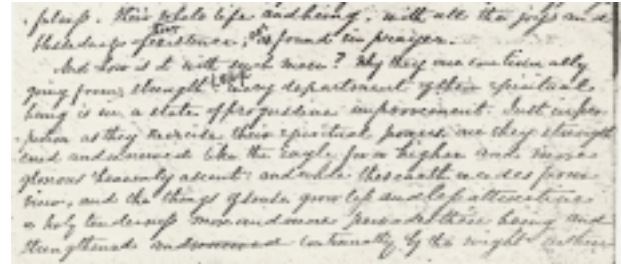 their whole life and being, with all the joys and
blessings of their existence, is found in prayer.
And how is it with such men? Why they are continually
going from strength to every department of their spiritual
being is in a state of progressive improvement. Just in pro-
portion as they exercise their spiritual powers are they strength
ened and renewed like the eagle for a higher and more
glorious heavenly ascent: and while the earth recedes from
view, and the things of sense grow less and less attractive
a holy tenderness more and more pervades their being and
strengthened and renewed continually by the might